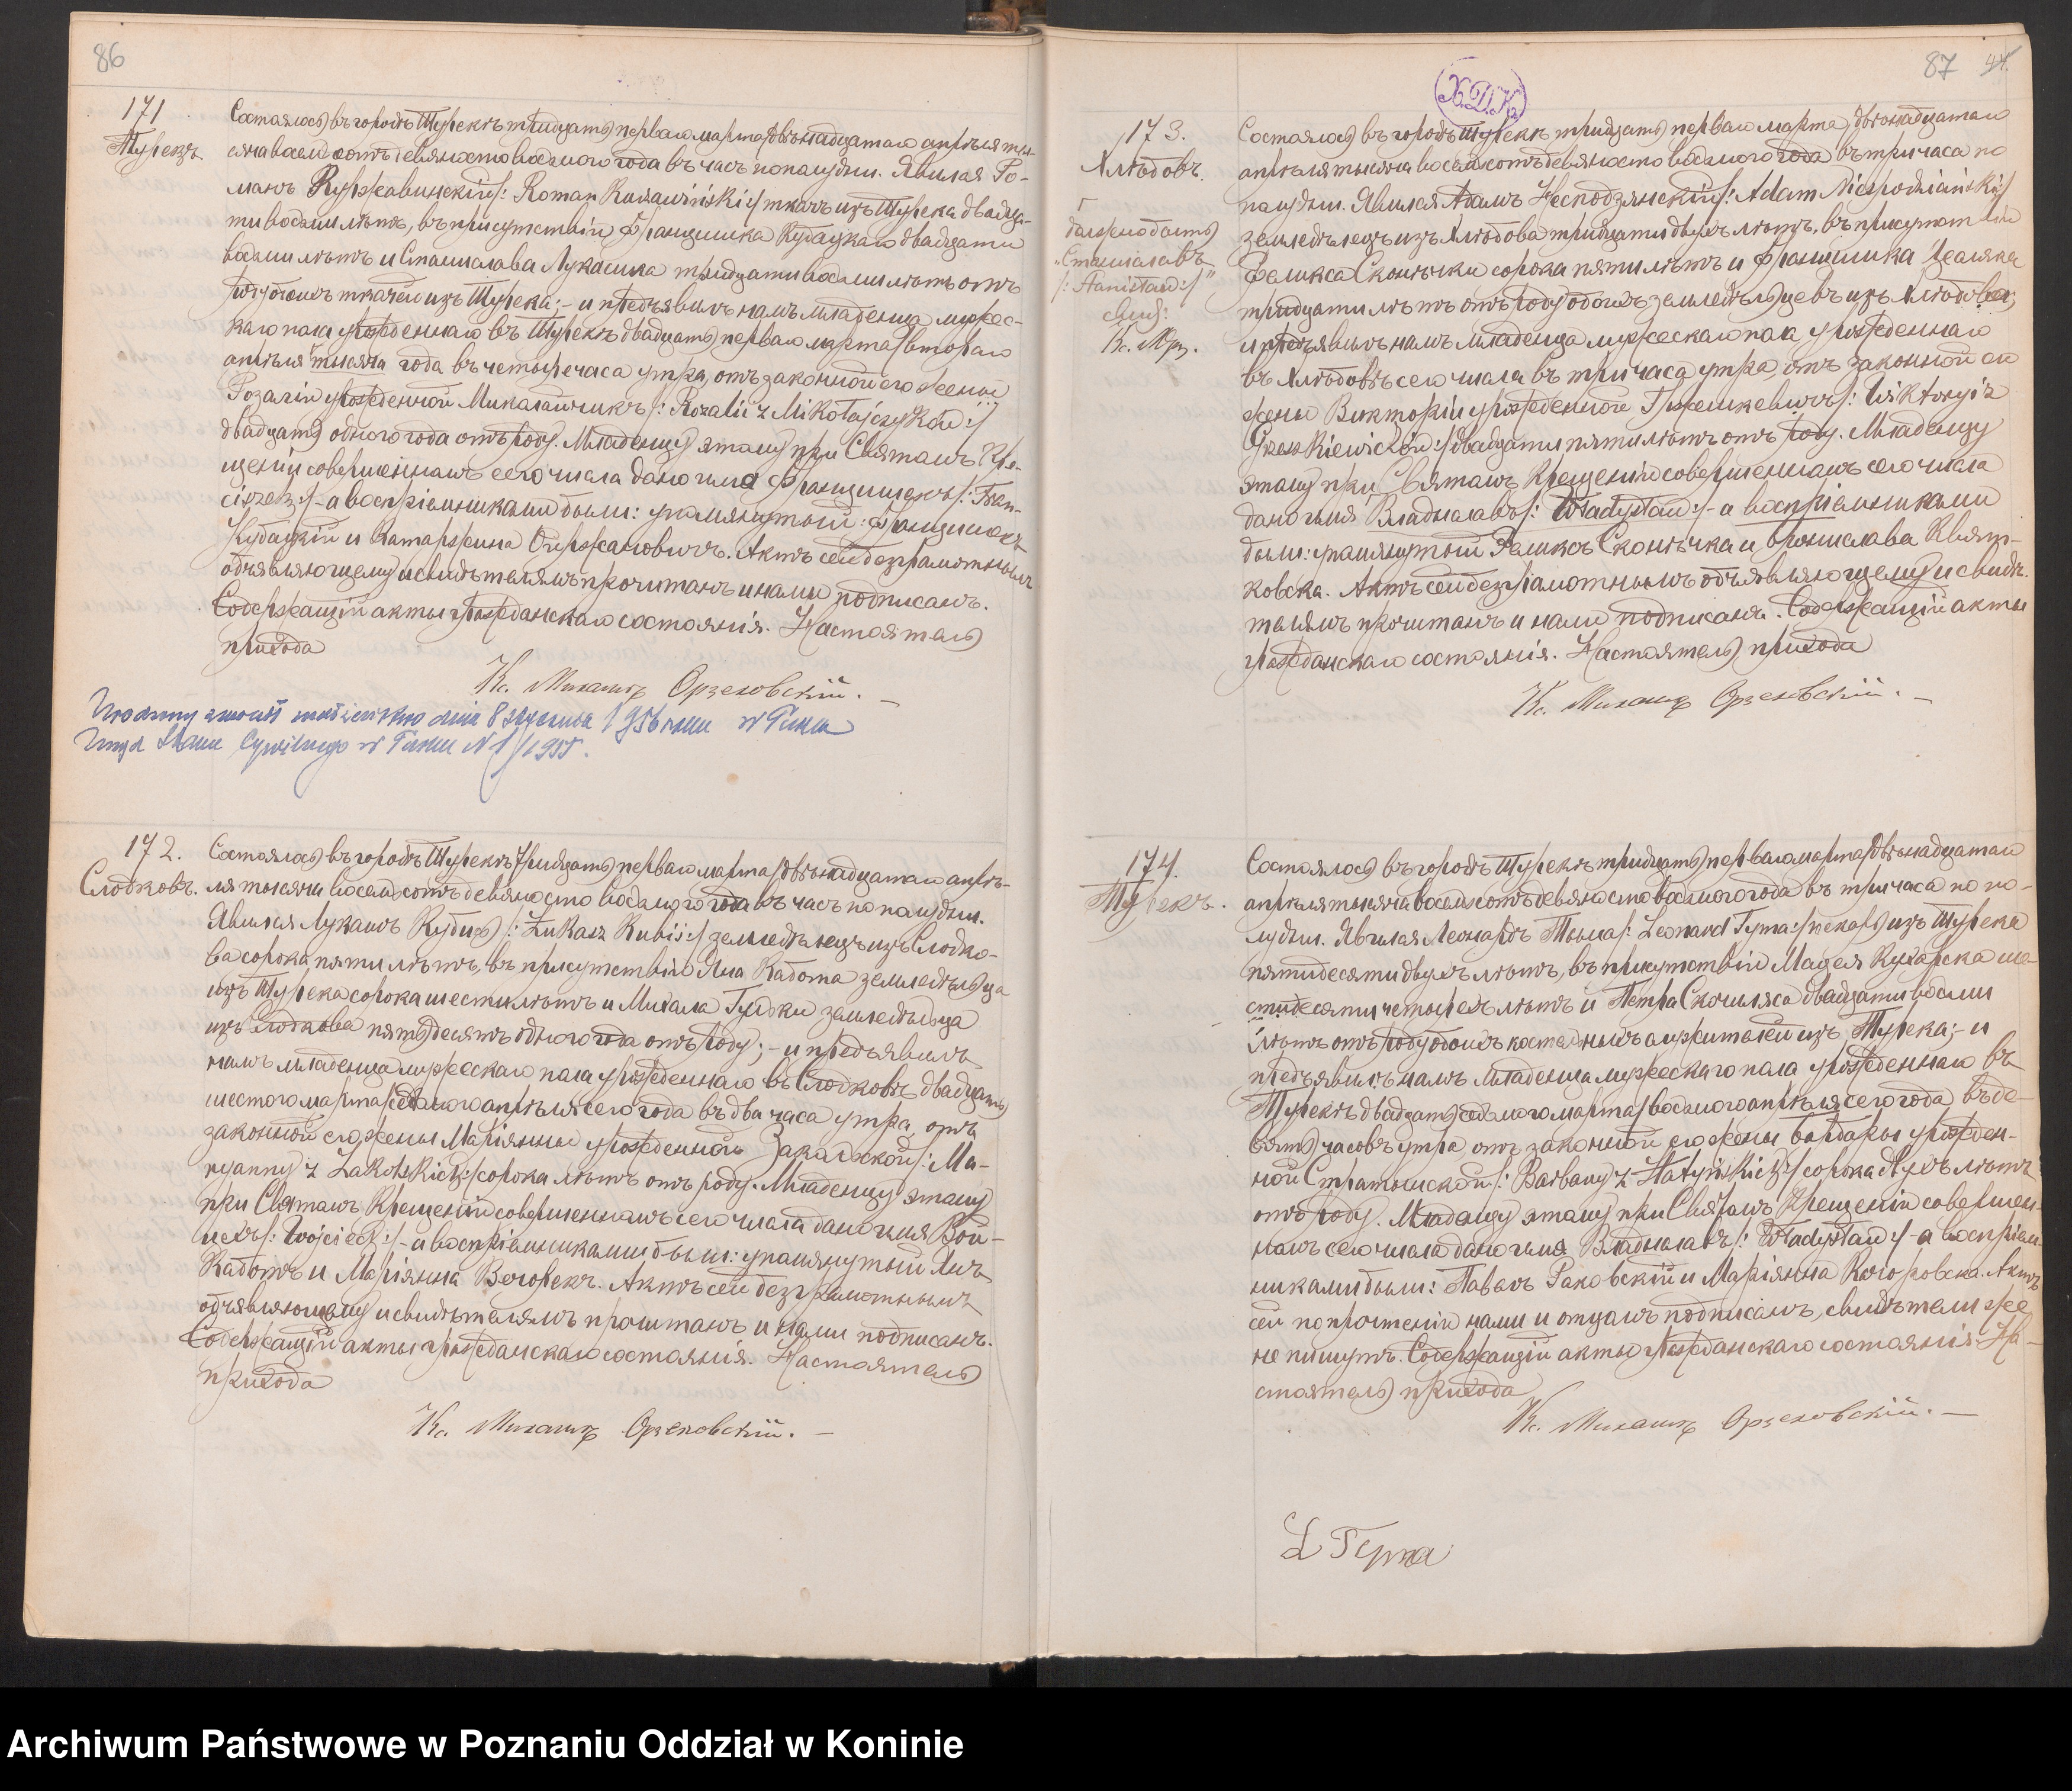 86
171
Турекъ.
Состоялось въ городѣ Турекѣ тридцать перваго марта /двѣнадцатаго апрѣля ты-
сяча восемь сотъ девяносто восьмого года въ часъ пополудни. Явился Ро-
манъ /: Roman :/ ткачъ изъ Турека двадца-
ти восьми лѣтъ, въ присутствіи Францишка Кубацкаго двадцати
восьми лѣтъ и Станислава Лукасика тридцати восьми лѣтъ отъ
роду обоихъ ткачей изъ Турека; - и предъявилъ намъ младенца мужес-
каго пола урожденнаго въ Турекѣ двадцать перваго марта /втораго
апрѣля года въ четыре часа утра, отъ законной его жены
Розаліи урожденной Миколайчикъ /: Rozalii z Mikołajczyków :/
двадцать одного года отъ роду. Младенцу этому при Святомъ Кре-
щеніи совершенномъ сего числа дано имя Францишекъ /: Fran-
ciszek :/ - а воспріемниками были: упомянутый Францишекъ
Кубацкій и Катаржина Актъ сей безграмотнымъ
объявляющему и свидѣтелямъ прочитанъ и нами подписанъ.
Содержащій акты гражданскаго состоянія. Настоятель
прихода
Кс. Михаилъ Орзеховскій. —
Urodzony zawarł małżeństwo dnia 8 stycznia w Turku
Urząd Stanu Cywilnego w Turku N 1/1955.
172.
Слодковъ.
Состоялось въ городѣ Турекѣ тридцать перваго марта /двѣнадцатаго апрѣ-
ля тысяча восемь сотъ девяносто восьмого года въ часъ пополудни.
Явился Лукашъ Рубись /: Łukasz Rubiś :/ земледѣлецъ изъ Слодко-
ва сорока пяти лѣтъ, въ присутствіи Яна Кадота земледѣльца
изъ Турека сорока шести лѣтъ и Михала земледѣльца
изъ Слодкова пятьдесятъ одного года отъ роду; - и предъявилъ
намъ младенца мужескаго пола урожденнаго въ Слодковѣ двадцать
шестого марта /седьмого апрѣля сего года въ два часа утра, отъ
законной его жены Маріянны урожденной /: Ma-
ryanny z :/ сорока лѣтъ отъ роду. Младенцу этому
при Святомъ Крещеніи совершенномъ сего числа дано имя Вой-
цехъ /: Wojciech :/ - а воспріемниками были: упомянутый Янъ
Кадотъ и Маріянна Актъ сей безграмотнымъ
объявляющему и свидѣтелямъ прочитанъ и нами подписанъ.
Содержащій акты гражданскаго состоянія. Настоятель
прихода
Кс. Михаилъ Орзеховскій. —
87 44
Х.Д.К.
173.
Хлѣбовъ.
"Станиславъ
/: Stanisław :/"
Кс. Мих.
Состоялось въ городѣ Турекѣ тридцать перваго марта /двѣнадцатаго
апрѣля тысяча восемьсотъ девяносто восьмого года въ три часа по
полудни. Явился Адамъ Несподзянскій /: Adam Niespodziański :/
земледѣлецъ изъ Хлѣбова тридцати двухъ лѣтъ, въ присутствіи
Феликса Сконечки сорока пяти лѣтъ и Францишка
тридцати лѣтъ отъ роду обоихъ земледѣльцевъ изъ Хлѣбова;
и предъявилъ намъ младенца мужескаго пола урожденнаго
въ Хлѣбовѣ сего числа въ три часа утра, отъ законной его
жены Викторіи урожденной Гжешкевичъ /: Wiktoryi z
Grzeszkiewiczów :/ двадцати пяти лѣтъ отъ роду. Младенцу
этому при Святомъ Крещеніи совершенномъ сего числа
дано имя Владиславъ /: Władysław :/ - а воспріемниками
были: упомянутый Феликсъ Сконечка и Бронислава Квят-
ковска. Актъ сей безграмотнымъ объявляющему и свидѣ-
телямъ прочитанъ и нами подписанъ. Содержащій акты
гражданскаго состоянія. Настоятель прихода
Кс. Михаилъ Орзеховскій. —
174.
Турекъ.
Состоялось въ городѣ Турекѣ тридцать перваго марта /двѣнадцатаго
апрѣля тысяча восемьсотъ девяносто восьмого года въ три часа по по-
лудни. Явился Леонардъ Тыма /: Leonard Tyma :/ пекарь изъ Турека
пятидесяти двухъ лѣтъ, въ присутствіи Мацея Кухарска ше-
стидесяти четырехъ лѣтъ и Петра двадцати восьми
лѣтъ отъ роду обоихъ изъ Турека; - и
предъявилъ намъ младенца мужескаго пола урожденнаго въ
Турекѣ двадцать седьмого марта /восьмого апрѣля сего года въ де-
вять часовъ утра, отъ законной его жены Барбары урожден-
ной /: Barbary z :/ сорока двухъ лѣтъ
отъ роду. Младенцу этому при Святомъ Крещеніи совершен-
номъ сего числа дано имя Владиславъ /: Władysław :/ - а воспріем-
никами были: Павелъ Раковскій и Маріянна Актъ
сей по прочтеніи нами и отцомъ подписанъ, свидѣтели же
не пишутъ. Содержащій акты гражданскаго состоянія. На-
стоятель прихода
Кс. Михаилъ Орзеховскій. —
L Tyma
Archiwum Państwowe w Poznaniu Oddział w Koninie